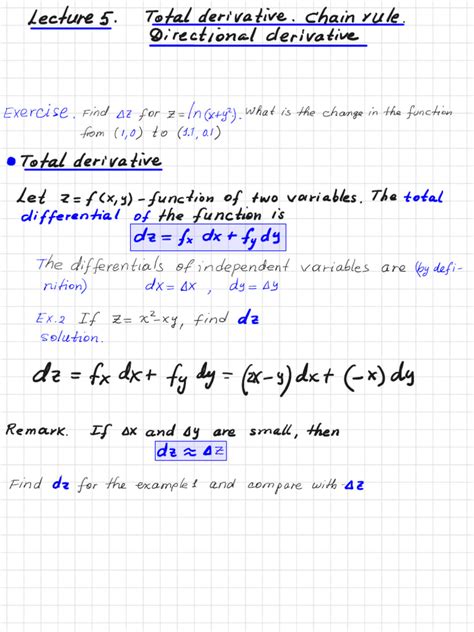 Lecture 5. Total derivative. Chain rule.
Directional derivative
Exercise. Find Δz for z = ln(x+y²). What is the change in the function
from (1,0) to (1.1, 0.1)
• Total derivative
Let z = f(x,y) - function of two variables. The total
differential of the function is
dz = fx dx + fy dy
The differentials of independent variables are (by defi-
nition) dx = Δx , dy = Δy
Ex.2 If z = x²-xy, find dz
solution.
dz = fx dx + fy dy = (2x-y)dx + (-x)dy
Remark. If Δx and Δy are small, then
dz ≈ Δz
Find dz for the example 1 and compare with Δz